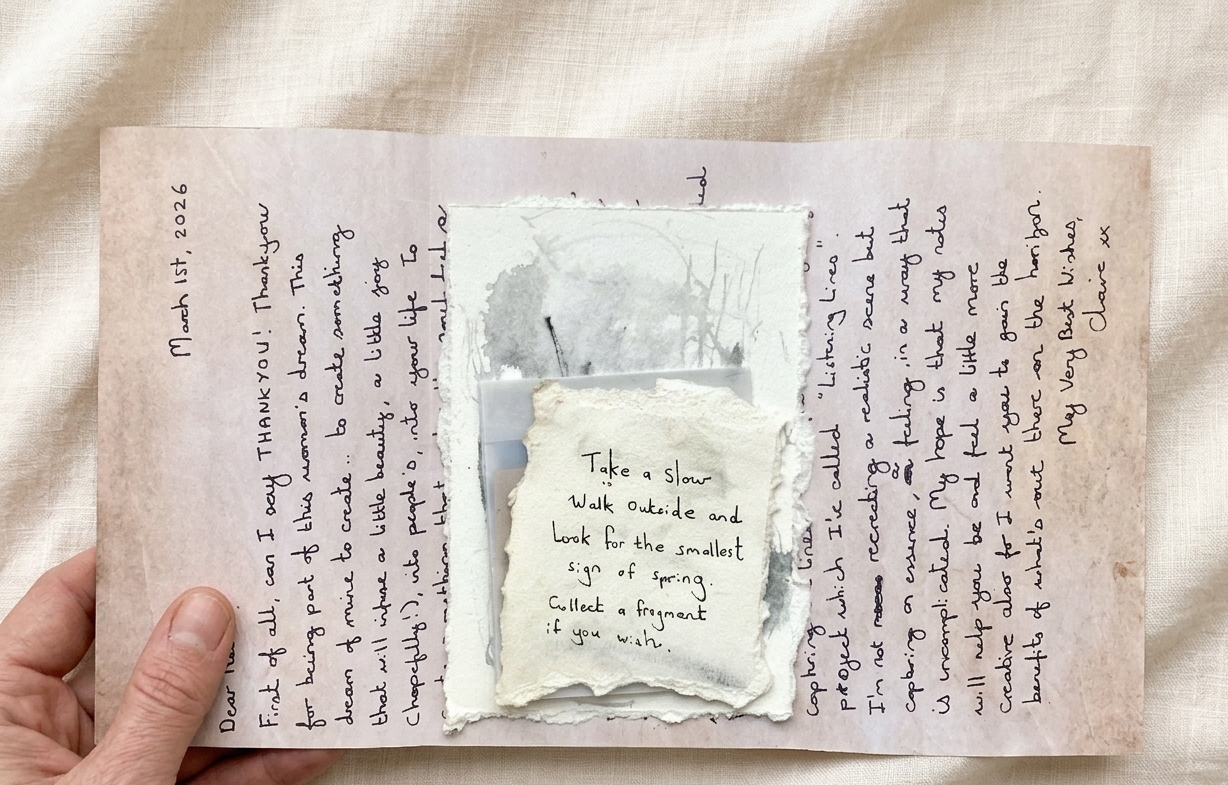 March 1st, 2026
Dear
First of all, can I say THANKYOU! Thankyou
for being part of this woman's dream. This
dream of mine to create .. to create something
that will infuse a little beauty, a little joy
(hopefully!), into people's, into your life To
Take a slow
Walk outside and
Look for the smallest
sign of spring.
Collect a fragment
if you wish.
capturing lines
project which I've called "Listening Lines".
I'm not recreating a realistic scene but
capturing an essence, a feeling, in a way that
is uncomplicated. My hope is that my notes
will help you be and feel a little more
creative also for I want you to gain the
benefits of what's out there on the horizon.
My Very Best Wishes,
Claire xx